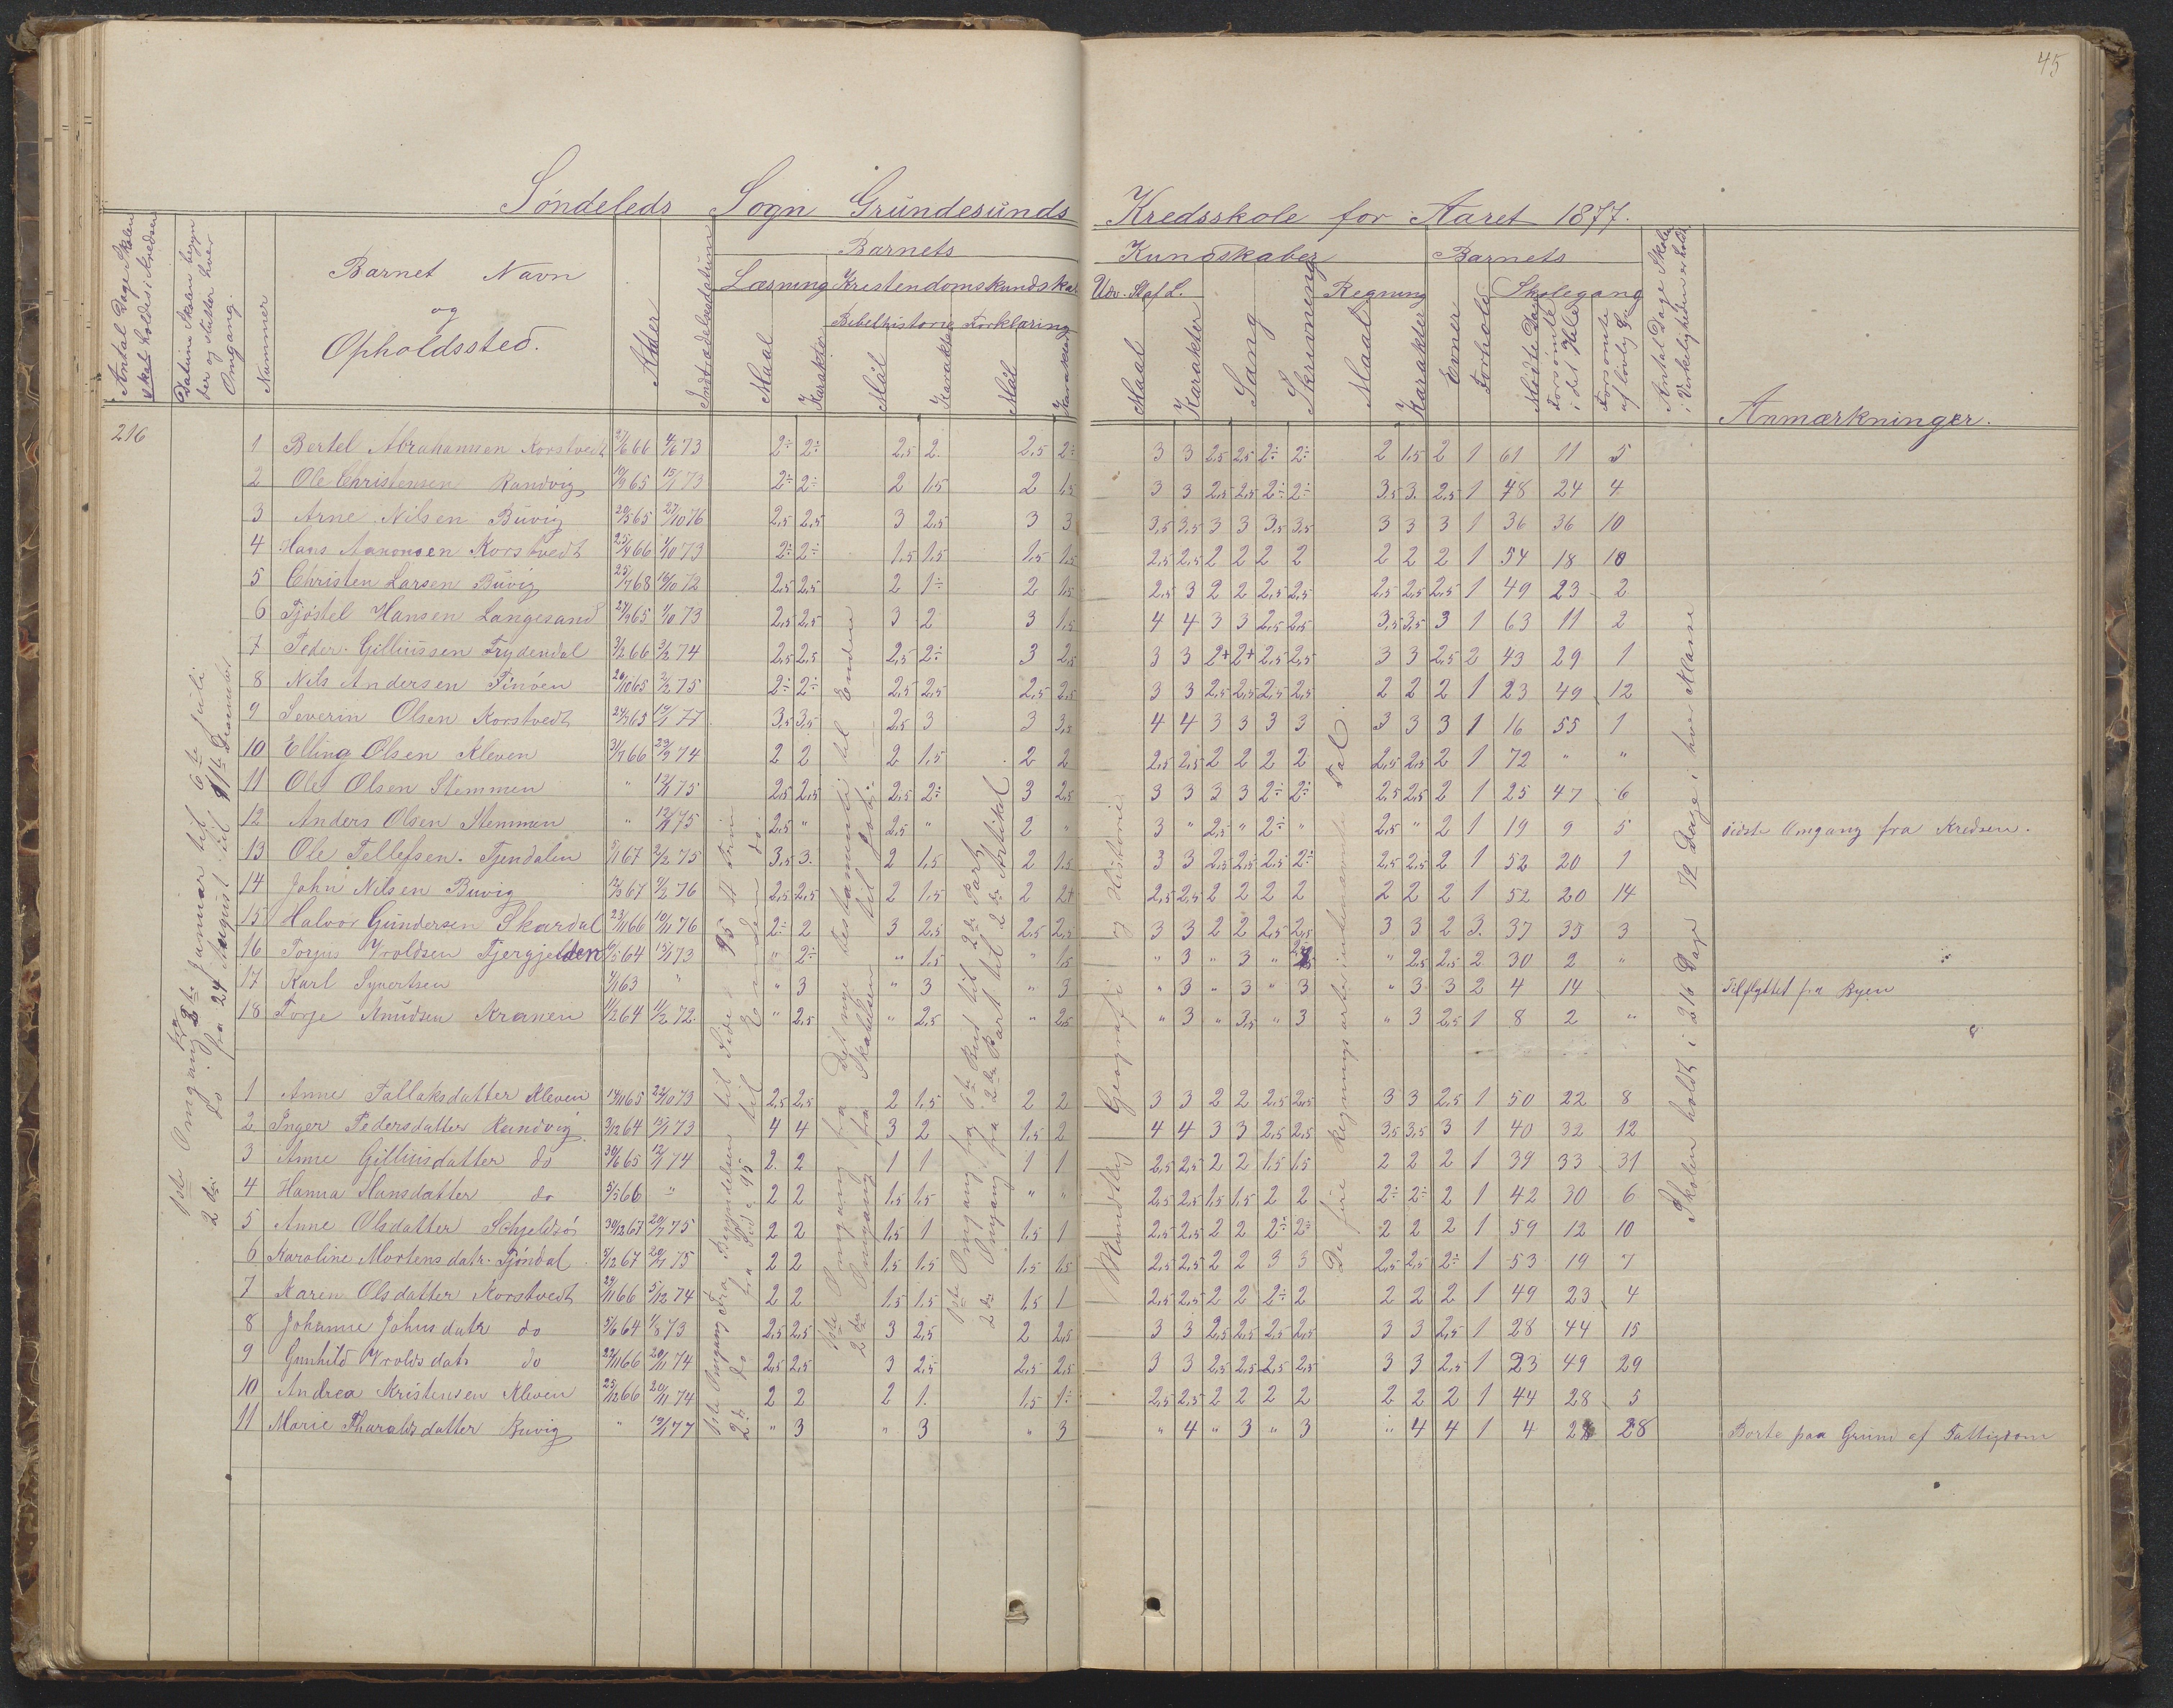 45
Søndeleds Sogn Grundesunds Kredsskole for Aaret 1877.
Antal Dage Skolen skal holdes i Kredsen
Datum Skolen begynder og slutter hver Omgang.
Nummer
Barnet Navn og Opholdssted.
Alder
Indtrædelsesdatum
Barnets Kundskaber
Læsning Kristendomskundskab
Bibelhistorie Forklaring
Maal Karakter Mål Karakter Mål Karakter
Udv. Skaf L.
Maal Karakter Sang Skrivning
Regning
Maal Karakter
Barnets
Evner Forhold
Skolegang
Mødte Dage
Forsømte i det Hele
Forsømte af lovlig Gr
Antal Dage Skolen i Virkeligheden er holdt
Anmærkninger.
216
1 Bertel Abrahamsen Korstvedt 2÷ 2÷ 2,5 2 2,5 2÷ 3 3 2,5 2,5 2÷ 2÷ 2 1,5 2 1 61 11 5
2 Ole Christensen Randvig 2÷ 2÷ 2 1,5 2 1,5 3 3 2,5 2,5 2÷ 2÷ 3,5 3. 2,5 1 48 24 4
3 Arne Nilsen Buvig 20/5 65 27/10 76 2,5 2,5 3 2,5 3 3 3,5 3,5 3 3 3,5 3,5 3 3 3 1 36 36 10
4 Hans Aanonsen Korstvedt 2÷ 2÷ 1,5 1,5 1,5 1,5 2,5 2,5 2 2 2 2 2 2 2 1 54 18 10
5 Christen Larsen Buvig 2,5 2,5 2 1÷ 2 1,5 2,5 3 2 2 2,5 2,5 2,5 2,5 2,5 1 49 23 2
6 Tjøstel Hansen Langesand 2,5 2,5 3 2 3 1,5 4 4 3 3 2,5 2,5 3,5 3,5 3 1 63 11 2
7 Peder Gilliussen Frydendal 3/2 66 3/2 74 2,5 2,5 2,5 2÷ 3 2,5 3 3 2+ 2+ 2,5 2,5 3 3 2,5 2 43 29 1
8 Nils Andersen 2÷ 2÷ 2,5 2,5 2,5 2,5 3 3 2,5 2,5 2,5 2,5 2 2 2 1 23 49 12
9 Severin Olsen Korstvedt 3,5 3,5 2,5 3 3 3,5 4 4 3 3 3 3 3 3 3 1 16 55 1
10 Elling Olsen Kleven 2 2 2 1,5 2 2 2,5 2,5 2 2 2 2 2,5 2,5 2 1 72 " "
11 Ole Olsen Stemmen " 12/1 75 2,5 2,5 2,5 2÷ 3 2,5 3 3 3 3 2÷ 2÷ 2,5 2,5 2 1 25 47 6
12 Anders Olsen Stemmen " 12/1 75 2,5 " 2,5 " 2 " 3 " 2,5 " 2÷ " 2,5 " 2 1 19 9 5 sidste Omgang fra Kredsen.
13 Ole Tellefsen. Tjendalen 3,5 3. 2 1,5 2 1,5 3 3 2,5 2,5 2,5 2÷ 2,5 2,5 2 1 52 20 1
14 John Nilsen Buvig 2,5 2,5 2 1,5 2 2+ 2,5 2,5 2 2 2 2 2 2 2 1 52 20 14
15 Halvor Gundersen Skardal 23/11 66 10/11 76 2÷ 2 3 2,5 2,5 2,5 3 3 2 2 2,5 2,5 3 3 2 3. 37 35 3
16 Torjus Vroldsen " 2÷ " 1,5 " 1,5 " 3 " 3 " " 2,5 2,5 2 30 2 "
17 Karl Syvertsen " " 3 " 3 " 3 " 3 " 3 " 3 " 3 3 2 4 14 Tilflyttet fra Byen
18 Torje Knudsen Kranen " 2,5 " 2,5 " 2,5 " 3 " 3,5 " 3 " 3 2,5 1 8 2 "
1 Anne Tallaksdatter Kleven 2,5 2,5 2 1,5 2 2 3 3 2 2 2,5 2,5 3 3 2,5 1 50 22 8
2 Inger Pedersdatter Randvig 4 4 3 2 1,5 2 4 4 3 3 2,5 2,5 3,5 3,5 3 1 40 32 12
3 Anne Gilliusdatter do 2. 2 1 1 1 1 2,5 2,5 2 2 1,5 1,5 2 2 2 1 39 33 31
4 Hanna Hansdatter do 5/5 66 " 2 2 1,5 1,5 " " 2,5 2,5 1,5 1,5 2 2 2÷ 2÷ 2 1 42 30 6
5 Anne Olsdatter 2 2 1,5 1 1,5 1 2,5 2,5 2 2 2÷ 2÷ 2 2 2 1 59 12 10
6 Karoline Mortensdatr. Tjöndal 2 2 1,5 1,5 1,5 1,5 2,5 2,5 2 2 3 3 2,5 2,5 2÷ 1 53 19 7
7 Karen Olsdatter Korstvedt 2 2 1,5 1,5 1,5 1 2,5 2,5 2 2 2÷ 2 2 2 2 1 49 23 4
8 Johanne Johnsdatr do 2,5 2,5 3 2,5 2 2,5 3 3 2,5 2,5 2,5 2,5 3 3 2,5 1 28 44 15
9 Gunhild Vroldsdatr do 2,5 2,5 3 2,5 2,5 2,5 3 3 2,5 2,5 2,5 2,5 3 3 2,5 1 23 49 29
10 Andrea Kristensen Kleven 25/12 66 20/11 74 2 2 2 1. 1,5 1÷ 2,5 2,5 2 2 2 2 2 2 2 1 44 28 5
11 Marie Tharaldsdatter Buvig " " 3 " 3 " 3 " 4 " 3 " 3 " 4 4 1 4 28 Borte paa Grund af Fattigdom
1ste Omgang fra Januar til 6te Juli
2den do. fra 24 August til 11te December
1ste Omgang Fra Begyndelsen til Side 95
2den do fra Side 95 til Enden
1ste Omgang fra Det nye testamente til Enden
2den Omgang fra Skabelsen til
1ste Omgang fra 6te Bud til 2den Part
2den Omgang fra 2den Part til 2den Artikel
Mundtlig Geografi og Historie
De fire Regningsarter i ubenævnte Tal.
Skolen holdt i 216 Dage 72 Dage i hver Klasse